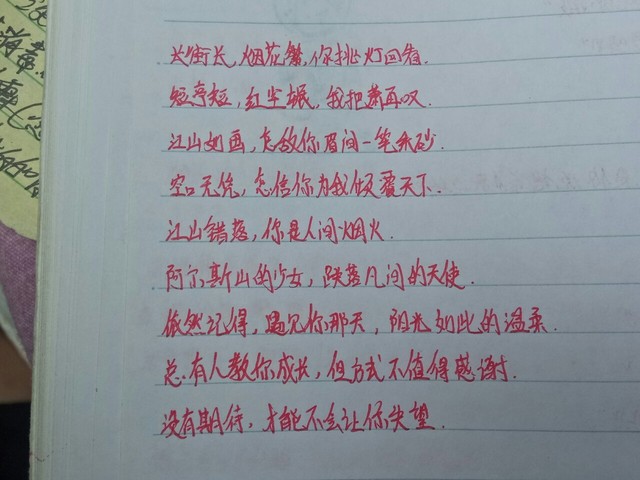 长街长,烟花繁,你挑灯回看.
短亭短,红尘辗,我把萧再叹.
江山如画,怎敌你眉间一笔朱砂.
空口无凭,怎信你为我倾覆天下.
江山错落,你是人间烟火.
阿尔斯山的少女,跌落凡间的天使.
依然记得,遇见你那天,阳光如此的温柔.
总有人教你成长,但方式不值得感谢.
没有期待,才能不会让你失望.